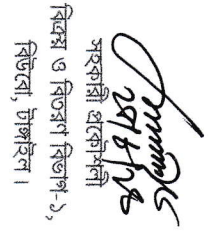 সহকারি প্রকৌশলী
বিক্রয় ও বিতরণ বিভাগ-১,
বিউবো, টাঙ্গাইল।